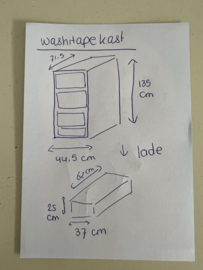 washitape kast
71.5
135
cm
44.5 cm
↓ lade
62 cm
25
cm
37 cm